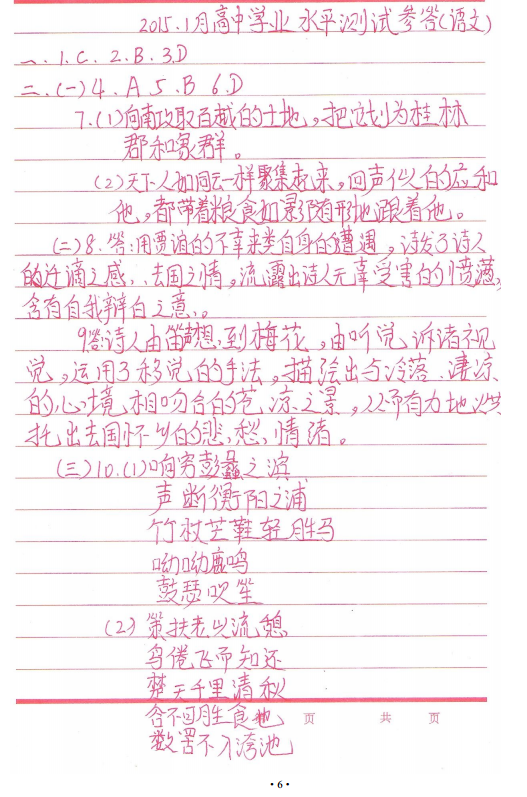 2015.1月高中学业水平测试参答(语文)
一.1.C.2.B.3.D
二.(一)4.A 5.B 6.D
7.(1)向南攻取百越的土地,把它划为桂林
郡和象群。
(2)天下人如同云一样聚集起来,回声似的应和
他,都带着粮食如影随形地跟着他。
(二)8.答:用贾谊的不幸来类自身的遭遇,诗发了诗人
的迁谪之感、去国之情,流露出诗人无辜受害的愤懑,
含有自我辩白之意。
9答:诗人由笛声想到梅花,由听觉诉诸视
觉,运用了移觉的手法,描绘出与冷落、凄凉
的心境相吻合的苍凉之景,从而有力地烘
托出去国怀乡的悲愁情绪。
(三)10.(1)响穷彭蠡之滨
声断衡阳之浦
竹杖芒鞋轻胜马
呦呦鹿鸣
鼓瑟吹笙
(2)策扶老以流憩
鸟倦飞而知还
楚天千里清秋
谷不可胜食也
数罟不入洿池
页 共 页
·6·